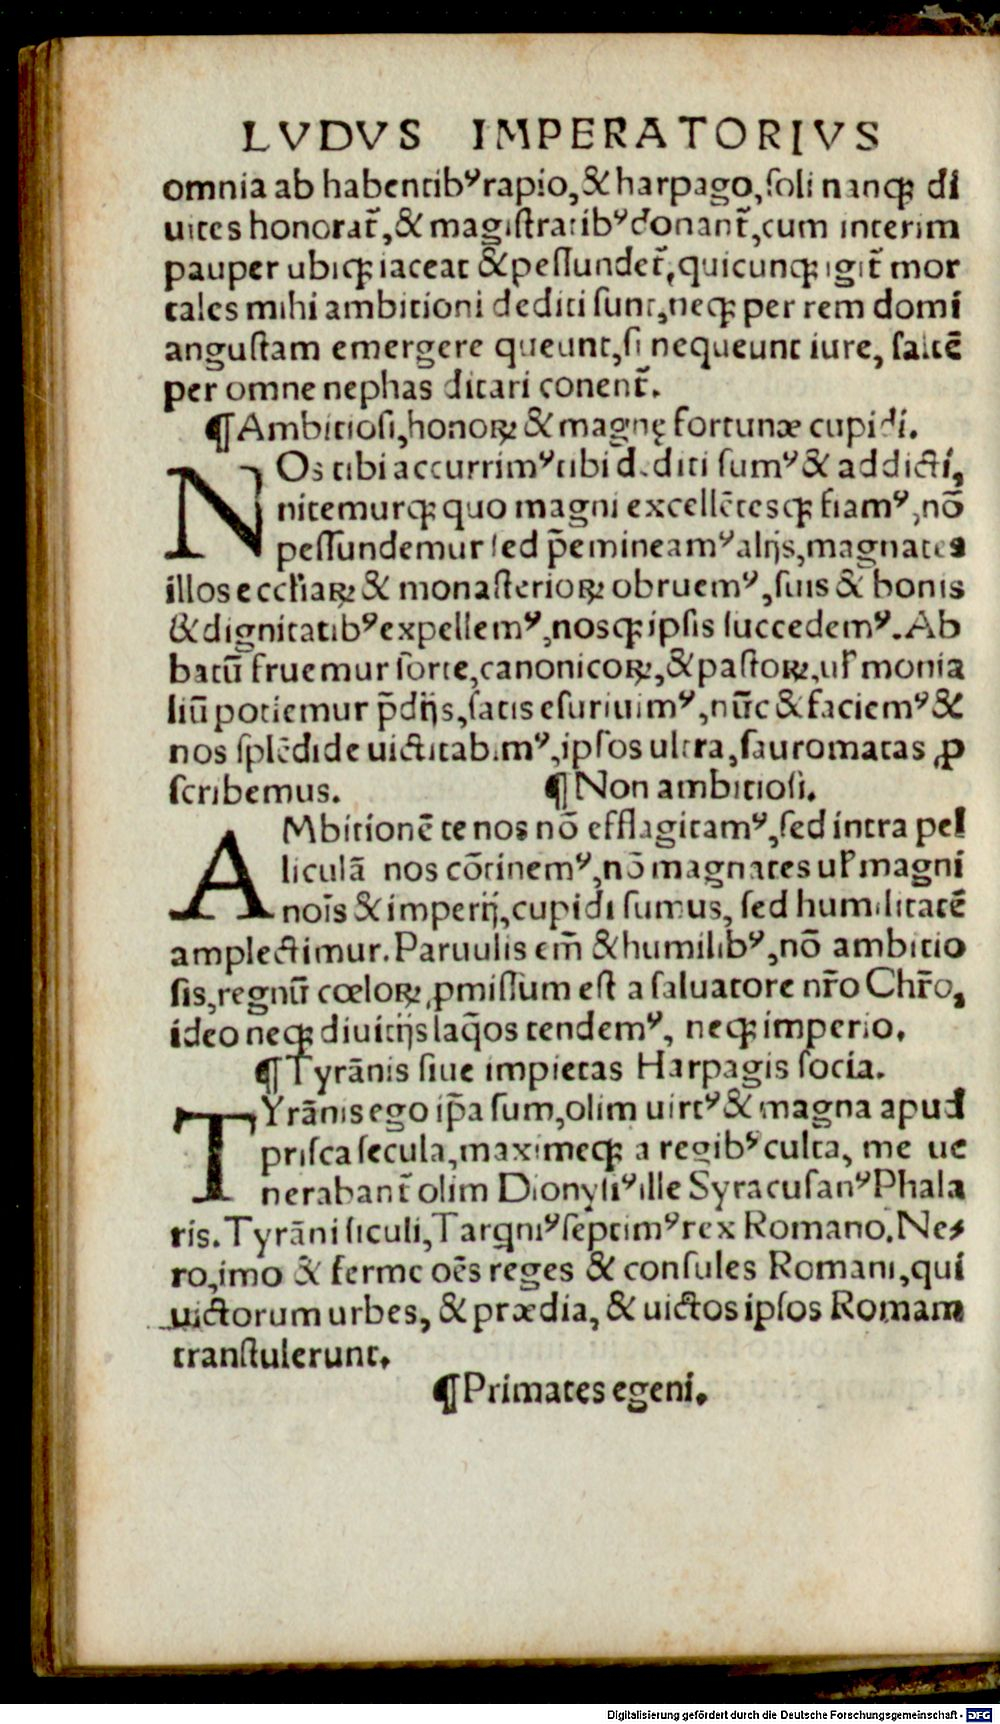 LVDVS IMPERATORIVS
omnia ab habentibꝰ rapio, & harpago, soli nanqꝫ di
uites honorat᷑, & magistratibꝰ donant᷑, cum interim
pauper ubiqꝫ iaceat & pessundet᷑, quicunqꝫ igit᷑ mor
tales mihi ambitioni dediti sunt, neqꝫ per rem domi
angustam emergere queunt, si nequeunt iure, saltē
per omne nephas ditari conent᷑.
¶ Ambitiosi, honoꝝ & magnę fortunæ cupidi.
NOs tibi accurrimꝰ tibi dediti sumꝰ & addicti,
nitemurqꝫ quo magni excellētesqꝫ fiamꝰ, nō
pessundemur sed p̄emineamꝰ alijs, magnates
illos eccłiaꝝ & monasterioꝝ obruemꝰ, suis & bonis
& dignitatibꝰ expellemꝰ, nosqꝫ ipsis succedemꝰ. Ab
batū fruemur sorte, canonicoꝝ, & pastoꝝ, uł monia
liū potiemur p̄dijs, satis esuriuimꝰ, nūc & faciemꝰ &
nos splēdide uictitabimꝰ, ipsos ultra, sauromatas ꝓ
scribemus. ¶ Non ambitiosi.
AMbitionē te nos nō efflagitamꝰ, sed intra pel
liculā nos cōtinemꝰ, nō magnates uł magni
noīs & imperij, cupidi sumus, sed humilitatē
amplectimur. Paruulis em̄ & humilibꝰ, nō ambitio
sis, regnū cœloꝝ ꝓmissum est a saluatore nr̄o Chr̄o,
ideo neqꝫ diuitijs laq̄os tendemꝰ, neqꝫ imperio.
¶ Tyrānis siue impietas Harpagis socia.
TYrānis ego ip̄a sum, olim uirtꝰ & magna apud
prisca secula, maximeqꝫ a regibꝰ culta, me ue
nerabant᷑ olim Dionysiꝰ ille Syracusanꝰ Phala
ris. Tyrāni siculi, Tarqniꝰ septimꝰ rex Romano. Ne⸗
ro, imo & ferme oēs reges & consules Romani, qui
uictorum urbes, & prædia, & uictos ipsos Romam
transtulerunt.
¶ Primates egeni.
Digitalisierung gefördert durch die Deutsche Forschungsgemeinschaft - DFG